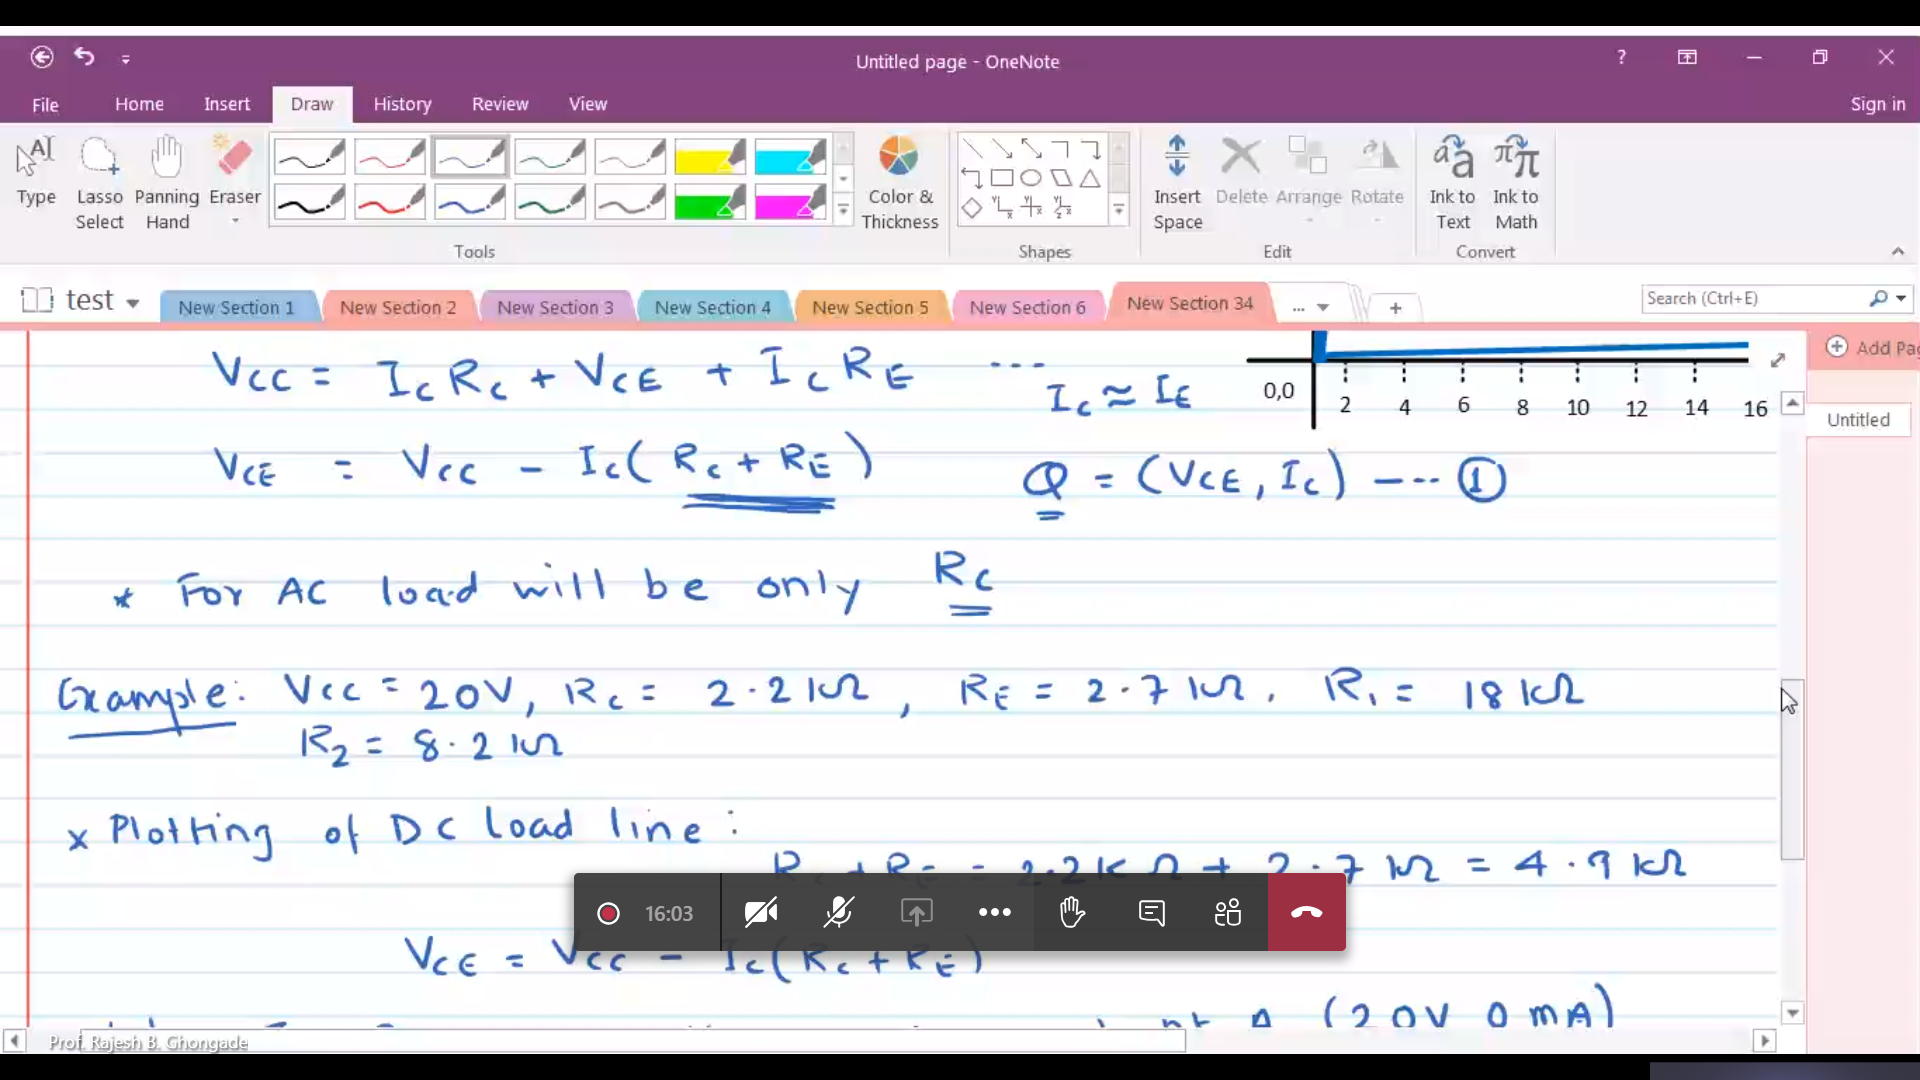 Untitled page - OneNote
?
File Home Insert Draw History Review View Sign in
Type Lasso Select Panning Hand Eraser Color & Thickness Insert Space Delete Arrange Rotate Ink to Text Ink to Math
Tools Shapes Edit Convert
test New Section 1 New Section 2 New Section 3 New Section 4 New Section 5 New Section 6 New Section 34 ... + Search (Ctrl+E)
Add Pag
Untitled
0,0 2 4 6 8 10 12 14 16
VCC = IC RC + VCE + IC RE ... IC ≈ IE
VCE = VCC - IC (RC + RE) Q = (VCE, IC) ---- ①
* For AC load will be only RC
Example: VCC = 20V, RC = 2.2 kΩ, RE = 2.7 kΩ, R1 = 18 kΩ
R2 = 8.2 kΩ
x Plotting of DC load line:
RC + RE = 2.2 k Ω + 2.7 kΩ = 4.9 kΩ
16:03
VCE = VCC - IC (RC + RE)
A (20V 0 mA)
Prof. Rajesh B. Ghongade